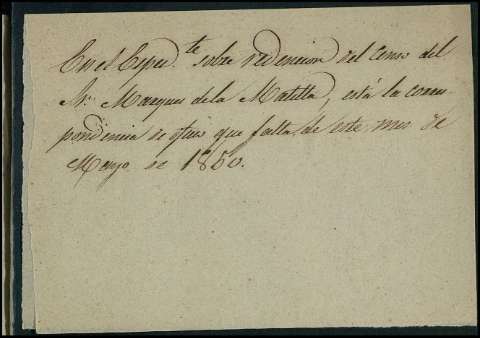 En el Exped.te sobre redencion del Censo del
Sr. Marques de la Matilla, está la corres-
pondencia de oficio que falta de este mes de
Marzo de 1850.